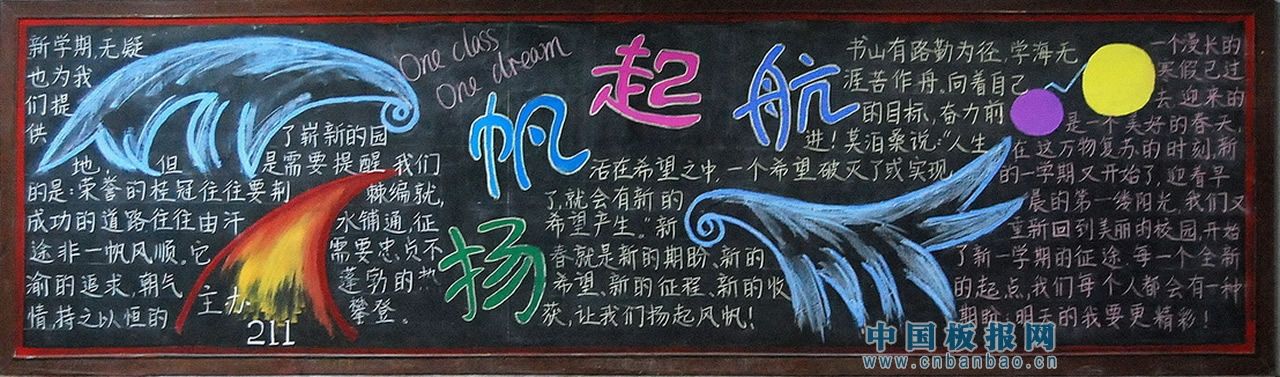 新学期,无疑
也为我
们提
供
了崭新的园
地,但是需要提醒我们
的是:荣誉的桂冠往往要荆棘编就,
成功的道路往往由汗水铺通,征
途非一帆风顺。它需要忠贞不
渝的追求,朝气蓬勃的热
情,持之以恒的攀登。
主办
211
One class
One dream
扬帆起航
书山有路勤为径,学海无
涯苦作舟。向着自己
的目标,奋力前
进!莫泊桑说:“人生
活在希望之中,一个希望破灭了或实现
了,就会有新的
希望产生。”新
春就是新的期盼、新的
希望、新的征程、新的收
获,让我们扬起风帆!
一个漫长的
寒假已过
去,迎来的
是一个美好的春天,
在这万物复苏的时刻,新
的一学期又开始了,迎着早
晨的第一缕阳光,我们又
重新回到美丽的校园,开始
了新一学期的征途,每一个全新
的起点,我们每个人都会有一种
期盼:明天的我要更精彩!
中国板报网
www.cnbanbao.cn